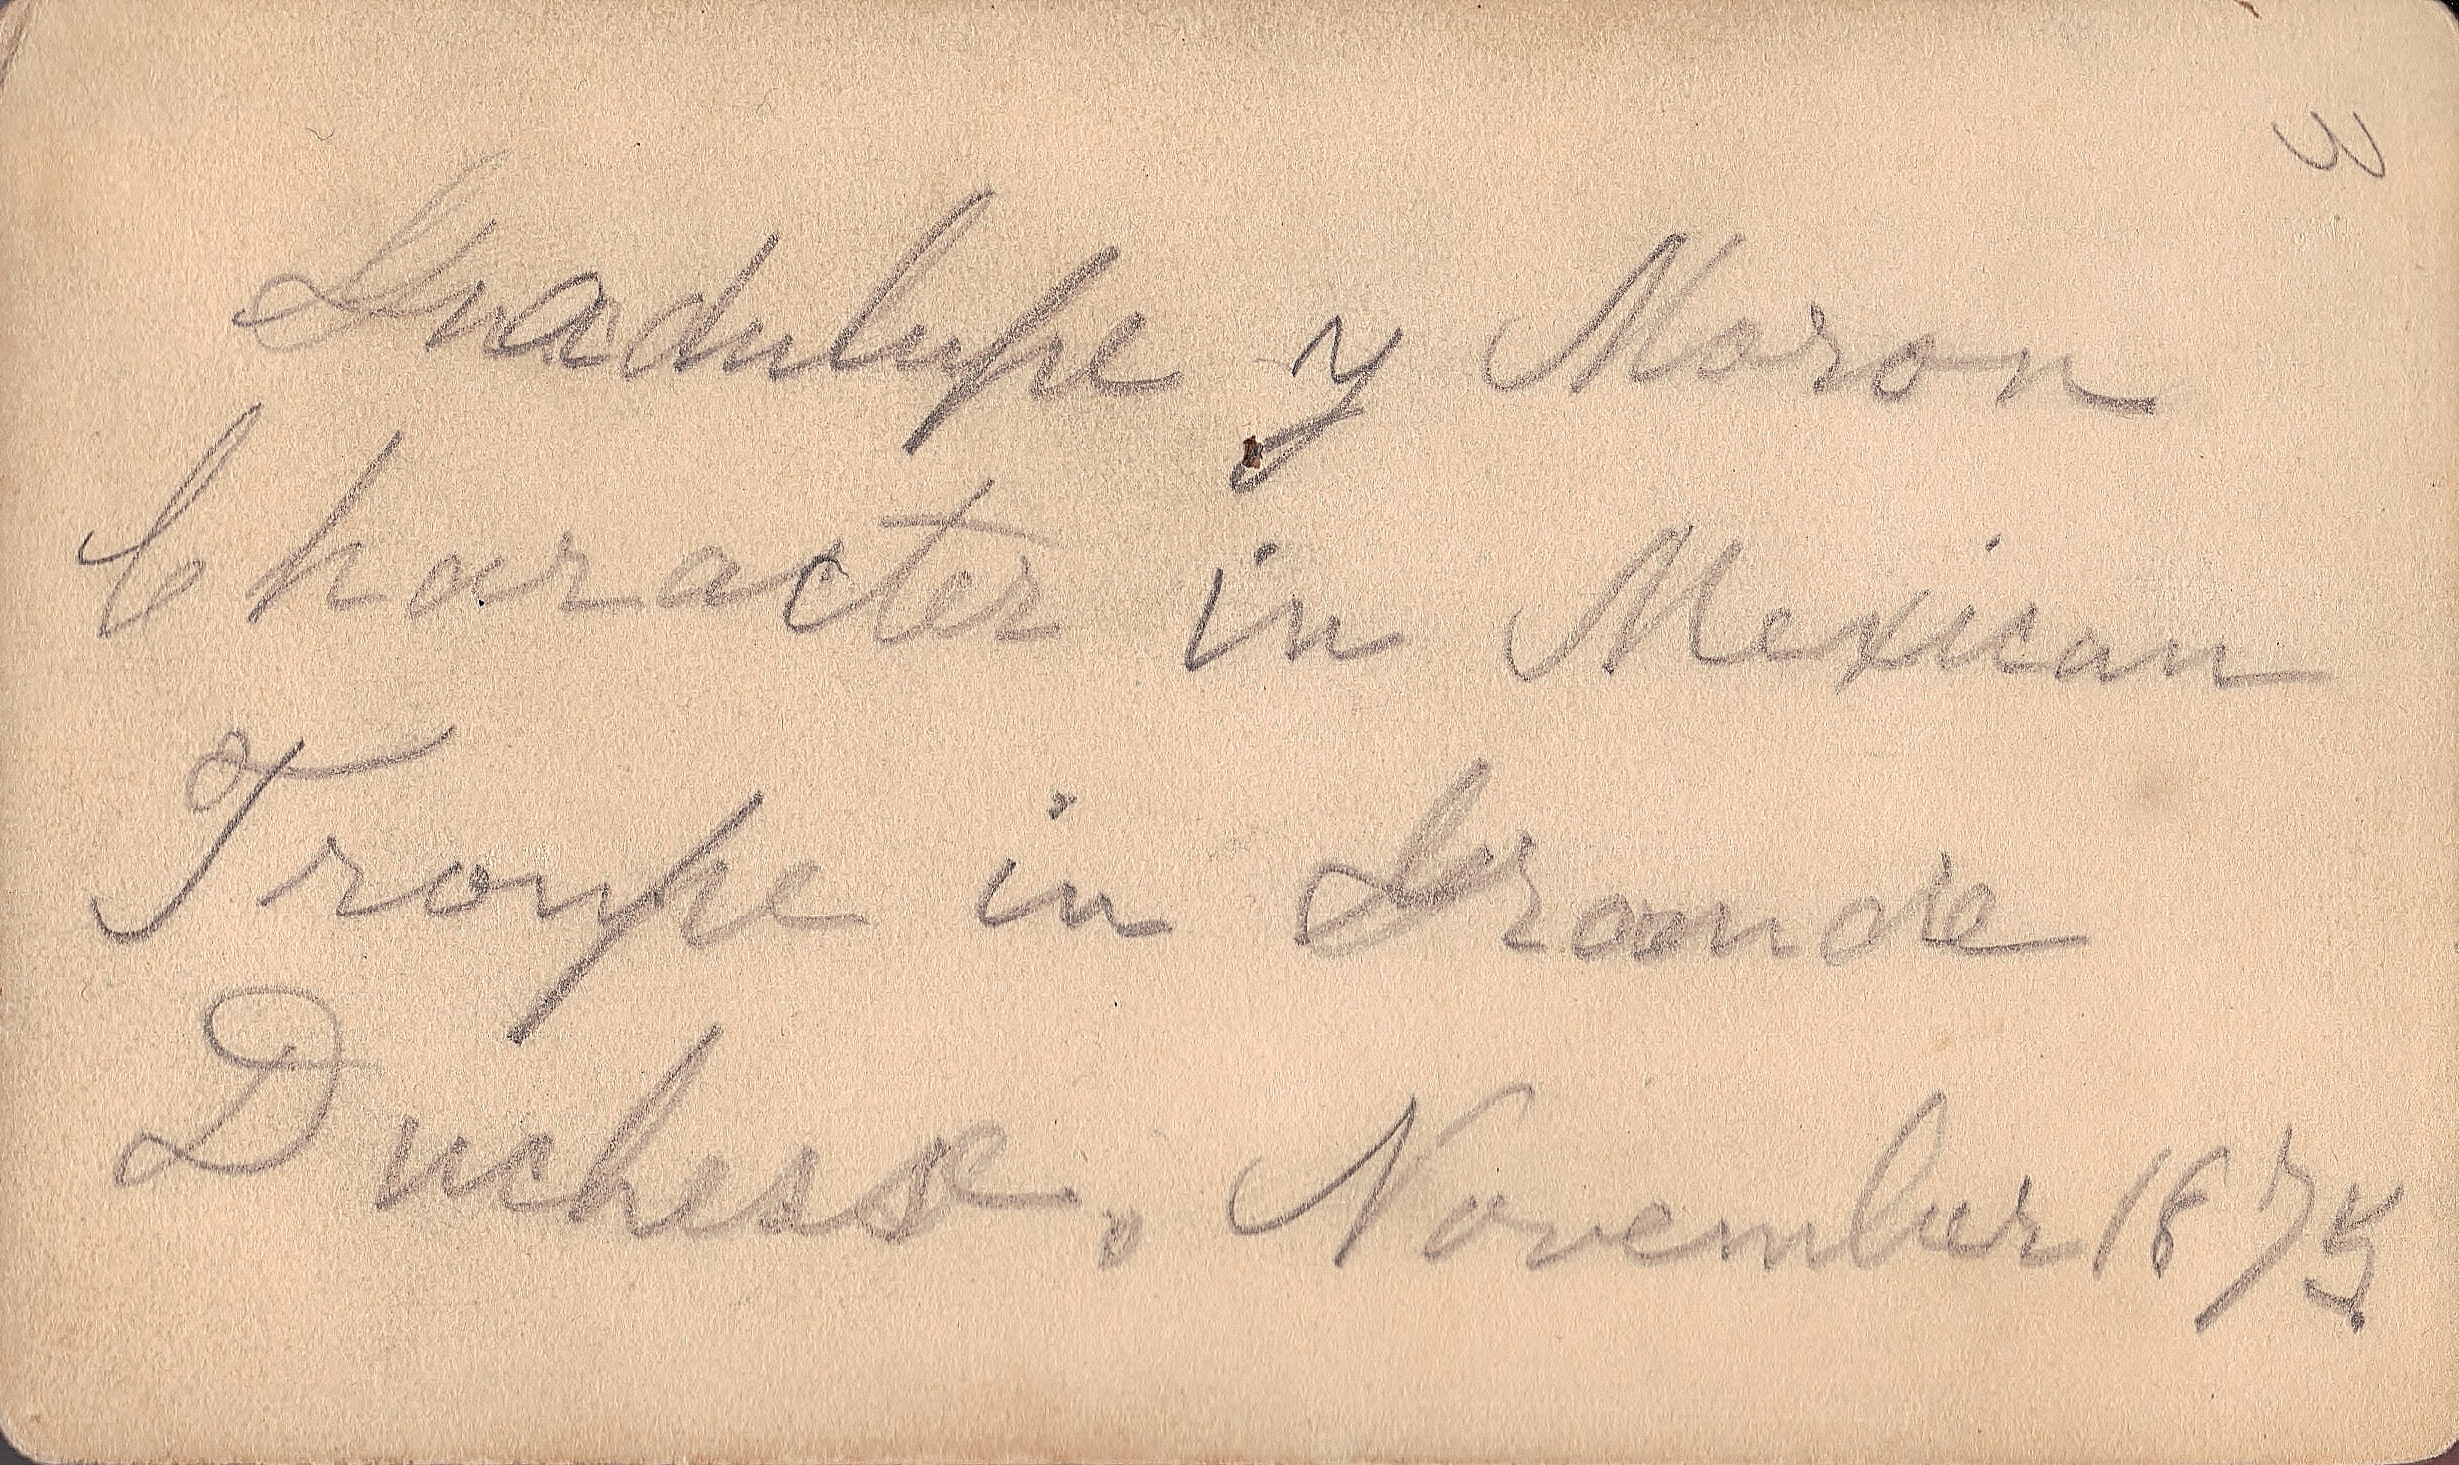 Guadulupe y Moron
Character in Mexican
Troupe in Grande
Duchesse, November 1875